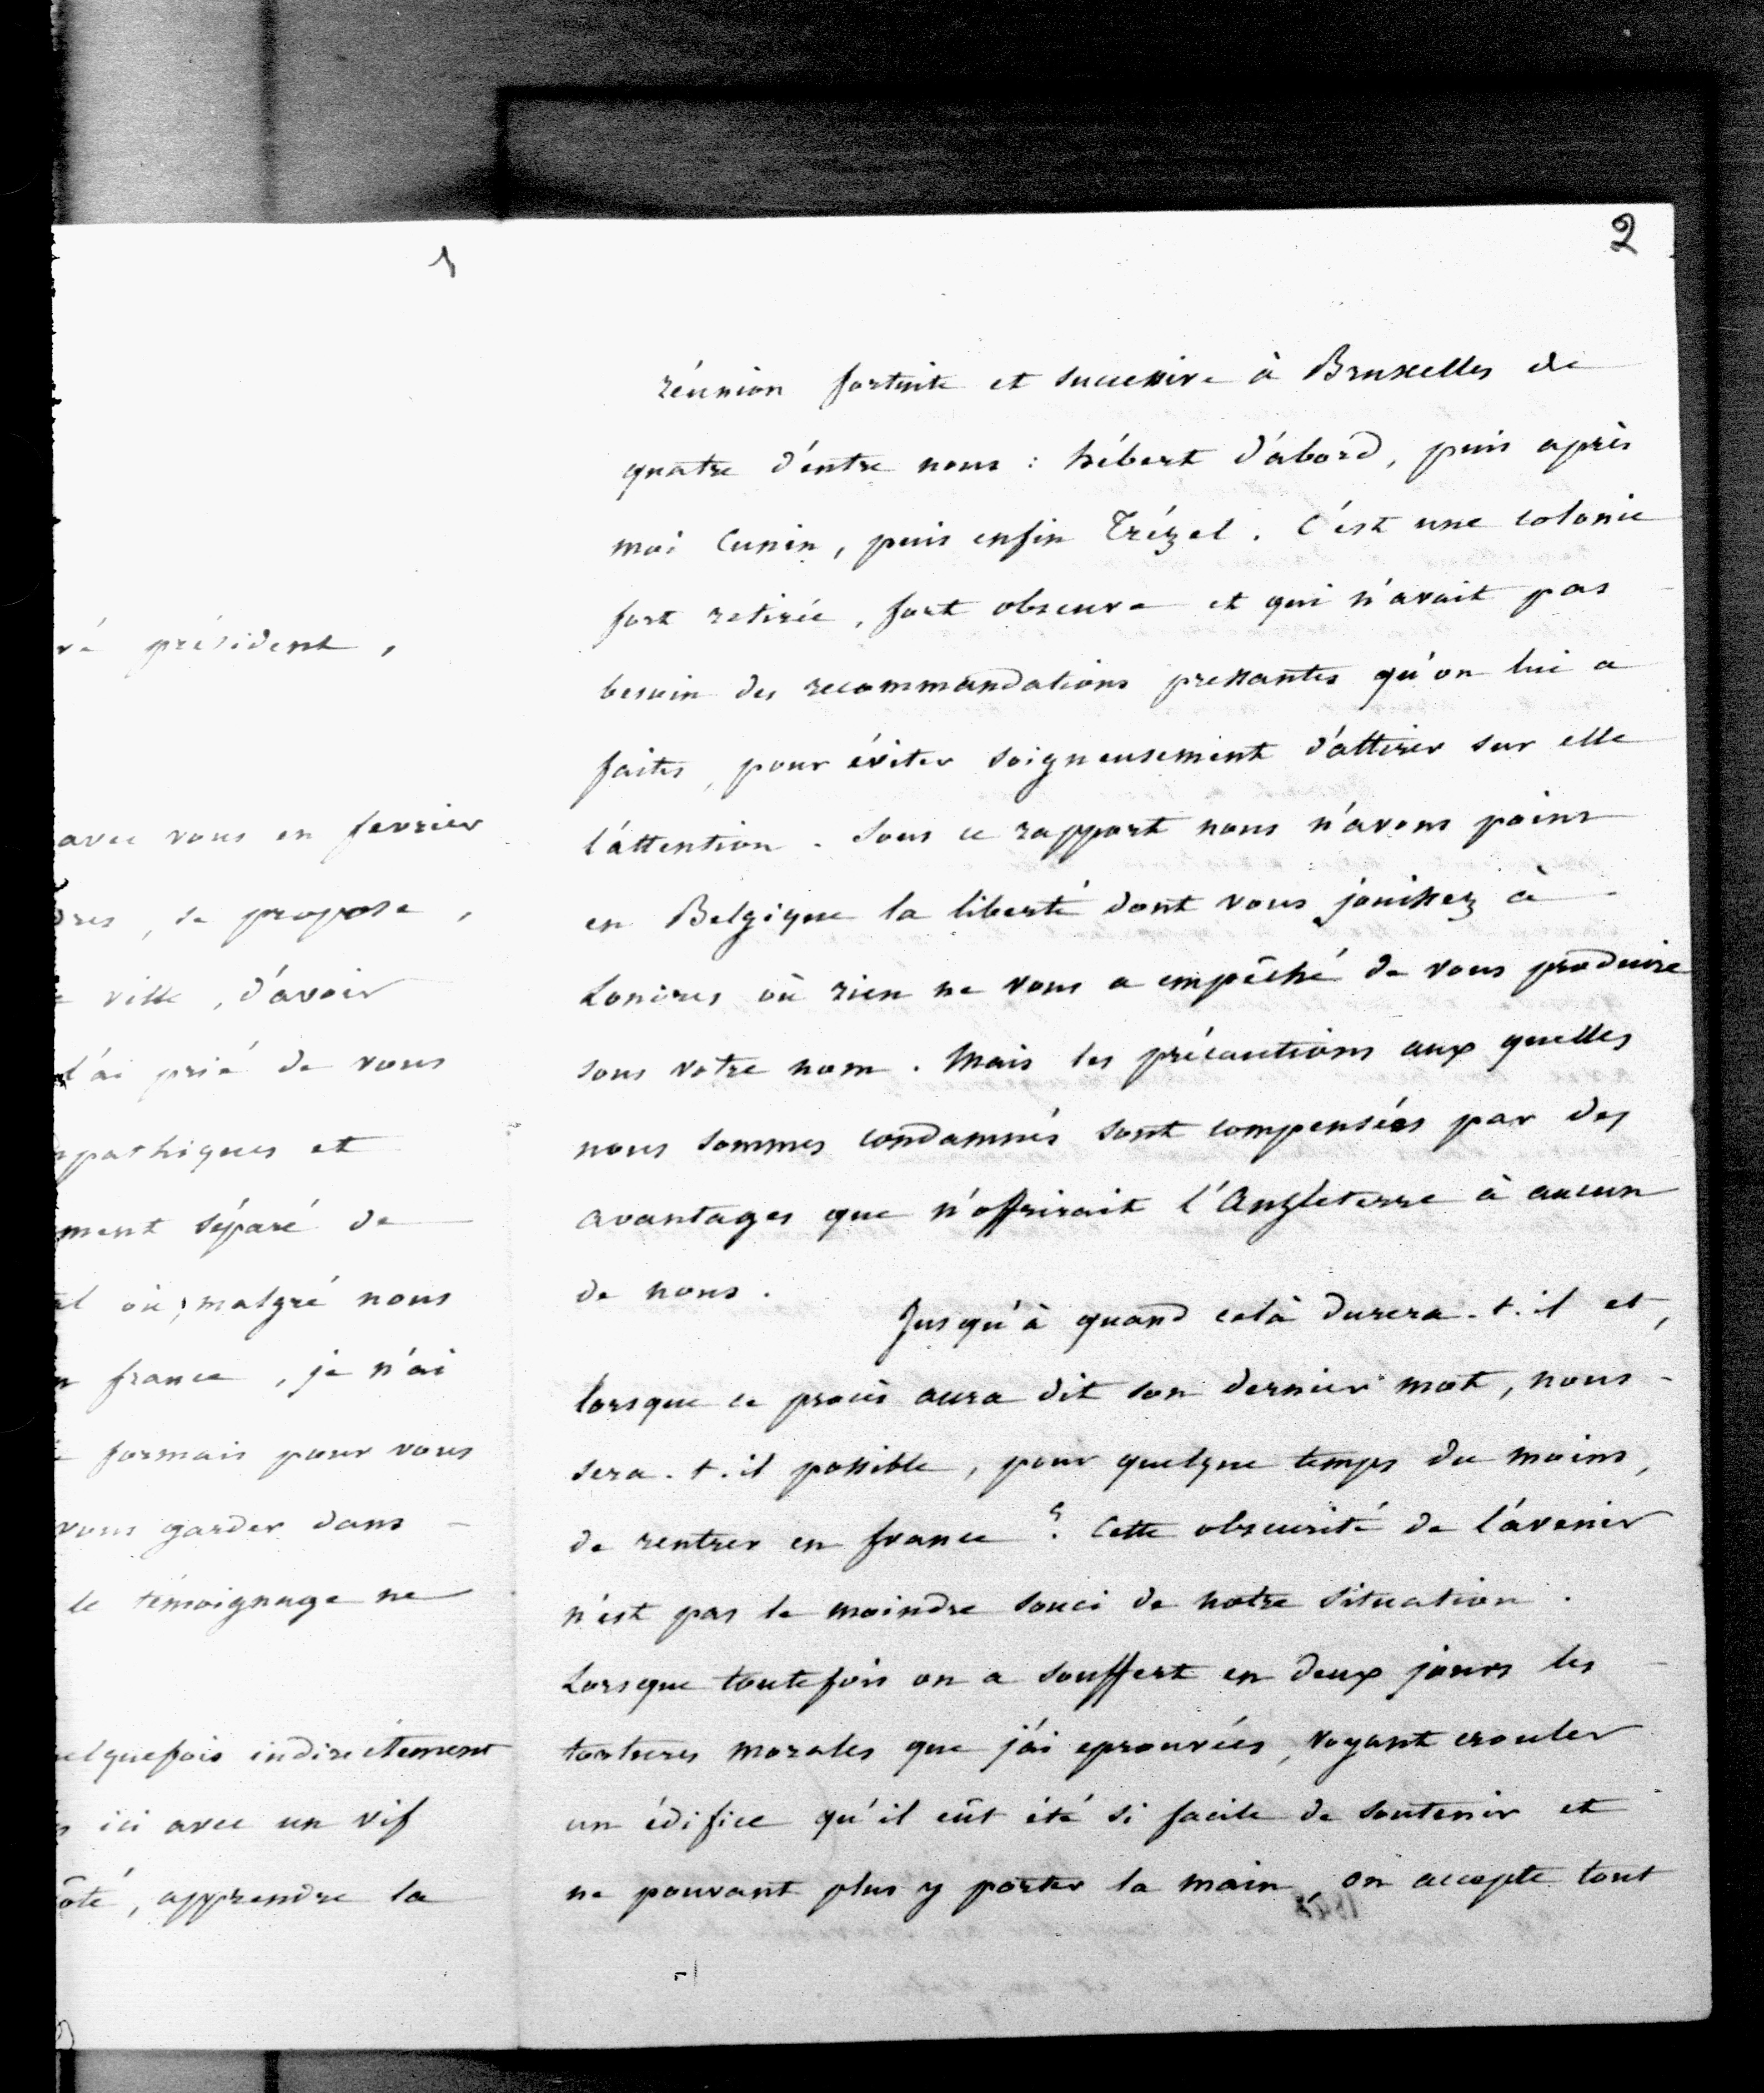 1
ré président,
avec vous en fevrier
dres, se propose,
ville, d'avoir
l'ai prié de vous
mpathiques et
ment séparé de
el où, malgré nous
n france, je n'ai
formais pour vous
vous garder dans
le témoignage ne
elquefois indirectement
ici avec un vif
ôté, apprendre la
2
réunion fortuite et successive à Bruxelles de
quatre d'entre nous : hébert d'abord, puis après
moi Cunin, puis enfin Trézel. C'est une colonie
fort retirée, fort obscure et qui n'avait pas
besoin des recommandations pressantes qu'on lui a
faites, pour éviter soigneusement d'attirer sur elle
l'attention. Sous ce rapport nous n'avons point
en Belgique la liberté dont vous jouissez à
Londres où rien ne vous a empêché de vous produire
sous votre nom. Mais les précautions aux quelles
nous sommes condamnés sont compensées par des
avantages que n'offrirait l'Angleterre à aucun
de nous.
Jusqu'à quand celà durera-t-il et,
lorsque ce procès aura dit son dernier mot, nous
sera-t-il possible, pour quelque temps du moins,
de rentrer en france ? Cette obscurité de l'avenir
n'est pas le moindre souci de notre situation.
Lorsque toutefois on a souffert en deux jours les
tortures morales que j'ai eprouvées, voyant crouler
un édifice qu'il eût été si facile de soutenir et
ne pouvant plus y porter la main, on accepte tout